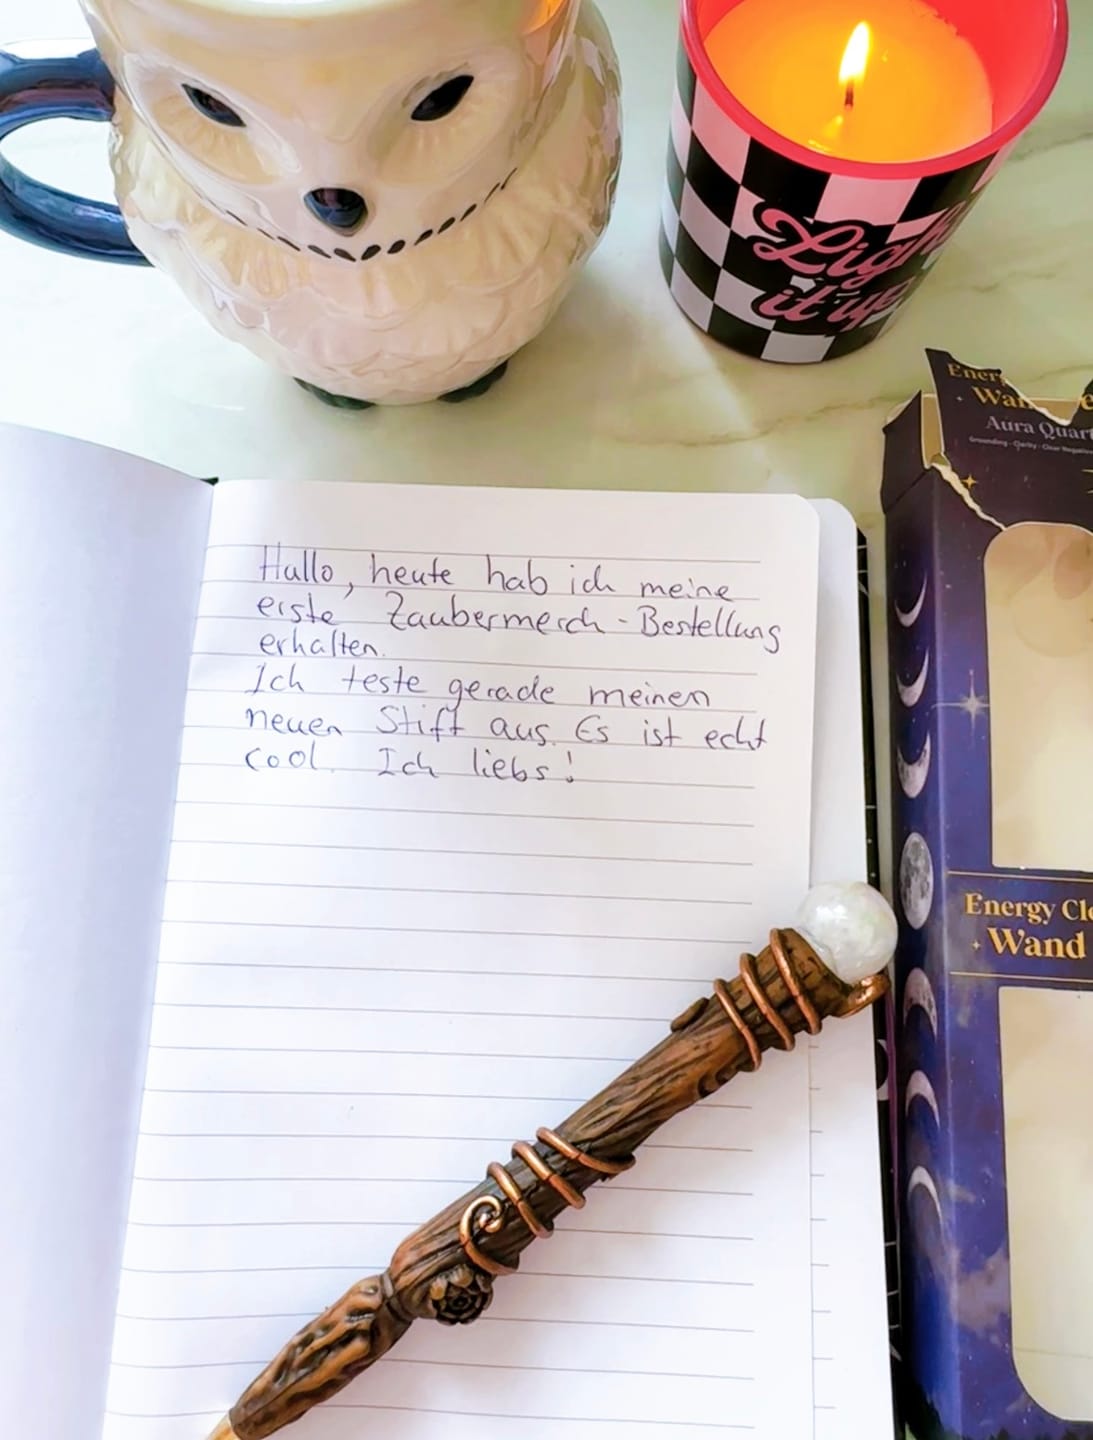 Light
it up
Aura
Grounding - Clarity - Clear
Hallo, heute hab ich meine
erste Zaubermerch - Bestellung
erhalten.
Ich teste gerade meinen
neuen Stift aus. Es ist echt
cool. Ich liebs!
Energy
Wand